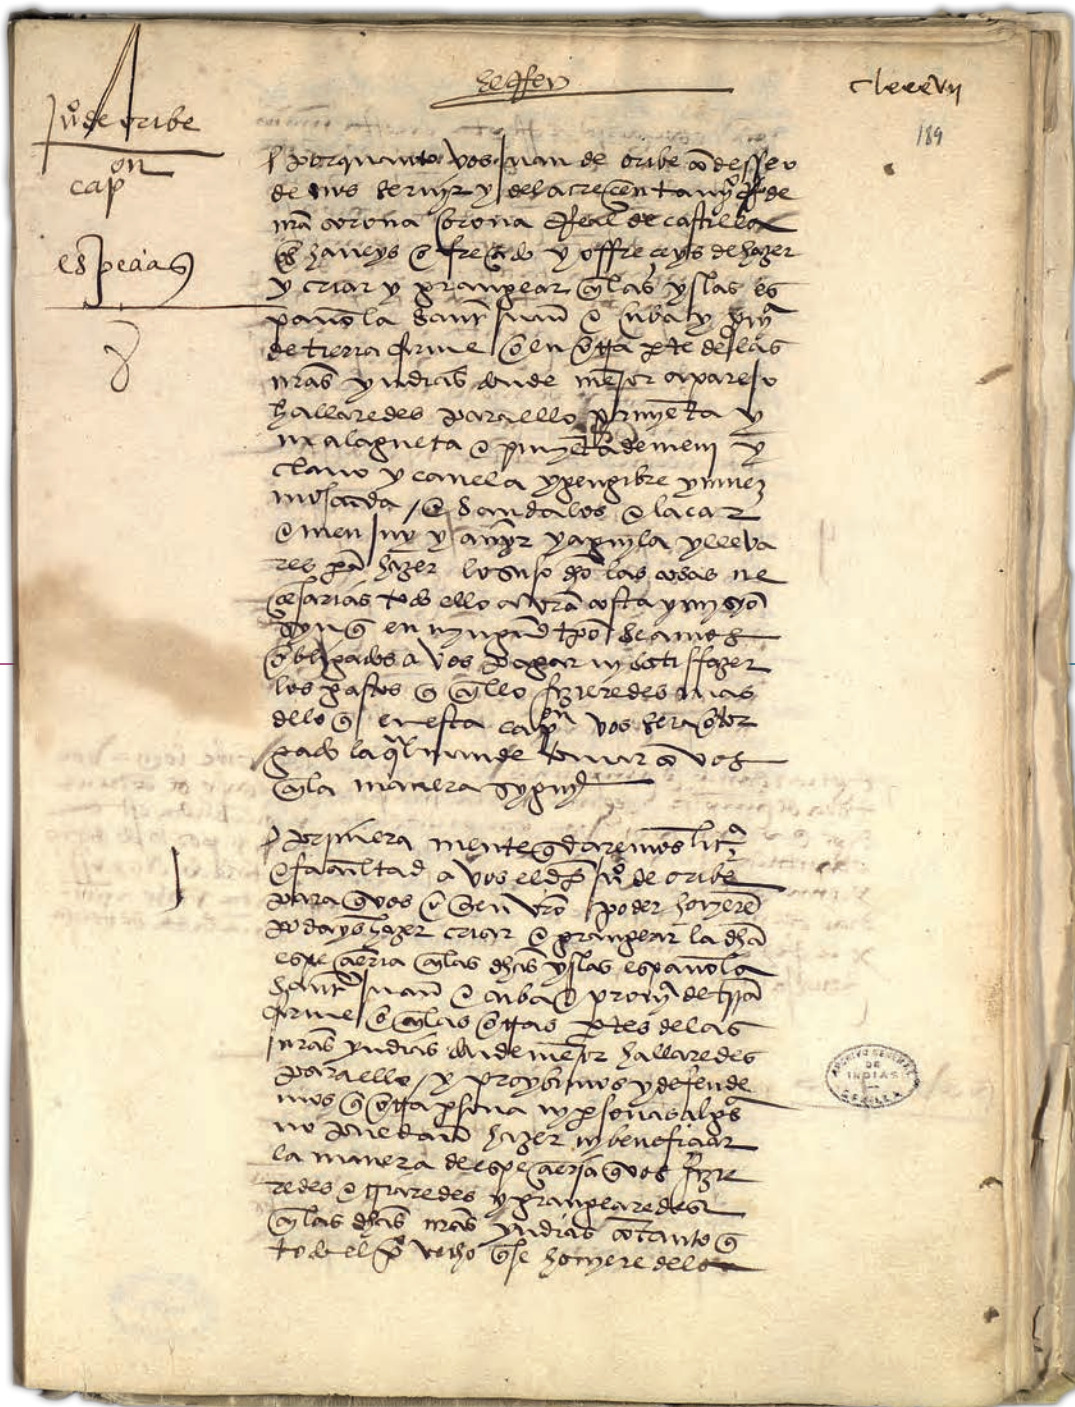 clxxxvii
189
Ju° de oribe
capon
especias
Porquanto vos Juan de oribe con desseo
de nos servir y del acrecentamy° de
nra corona corona Real de castilla
os haveys ofrecido y offreceys de hazer
y criar y grangear en las yslas es
panola sant Juan e cuba y
de tierra firme o en otra pte de las
nras yndias donde mejor aparejo
hallaredes para ello pimyenta y
malagueta e
clavo y canela y gengibre y nuez
moscada / e sandalos e lacar
e menjuy y y aguila y lleva
res pa hazer lo suso dho las cosas ne
cesarias todo ello a vra costa y mysyon
syn q en nyngund tpo seamos
obligados a vos pagar ny satisffazer
los gastos q en ello fizieredes mas
de lo q en esta capon vos sera otor
gado la ql mande tomar con vos
en la manera syguyᵉ
Primera mente q daremos lica
e facultad a vos el dho Ju° de oribe
para q vos o quien vro poder hovyere
podays hazer criar e grangear la dha
especieria en las dhas yslas espanola
sant Juan e cuba e provya de trra
firme o en las otras ptes de las
nras yndias donde mejor hallaredes
para ello / y proybimos y defende
mos q otra psona ny personas algᵃs
no puedan hazer ny beneficiar
la manera de especieria q vos fizie
redes e criaredes y grangearedes
en las dhas nras yndias con tanto q
todo el pro vecho q se hovyere dello
ARCHIVO GENERAL
DE
INDIAS
SEVILLA